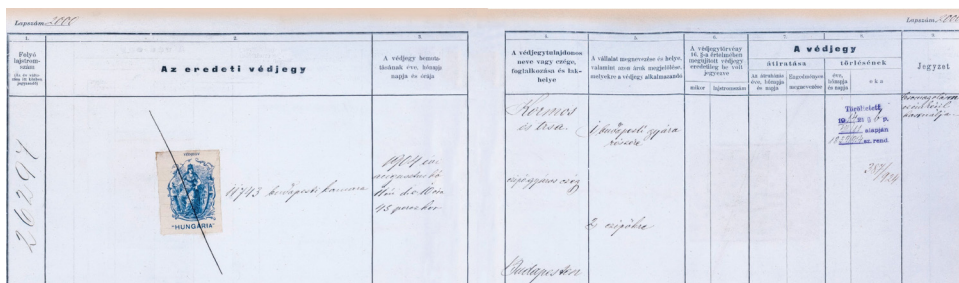 Lapszám 2000
Lapszám 2000
1.
Folyó lajstrom-szám
2.
Az eredeti védjegy
3.
A védjegy bemuta-
tásának éve, hónapja
napja és órája
A védjegytulajdonos
neve vagy czége,
foglalkozása és lak-
helye
A vállalat megnevezése és helye,
valamint azon áruk megjelölése,
melyekre a védjegy alkalmazandó
A védjegytörvény
16. §-a értelmében
megujított védjegy
eredetileg be volt
jegyezve
mikor
lajstromszám
A védjegy
átiratása
Az átiratás
éve, hónapja
és napja
Engedményes
megnevezése
törlésének
éve,
hónapja
és napja
oka
Jegyzet
26297
VÉDJEGY
"HUNGÁRIA"
11743 budapesti kamara
1904 évi
45 perczkor
Kormos
és társa
A budapesti gyára
részére
czipőgyáros czég
Cz czipőkre
Budapesten
Töröltetett
alapján
sz. rend.
387/924